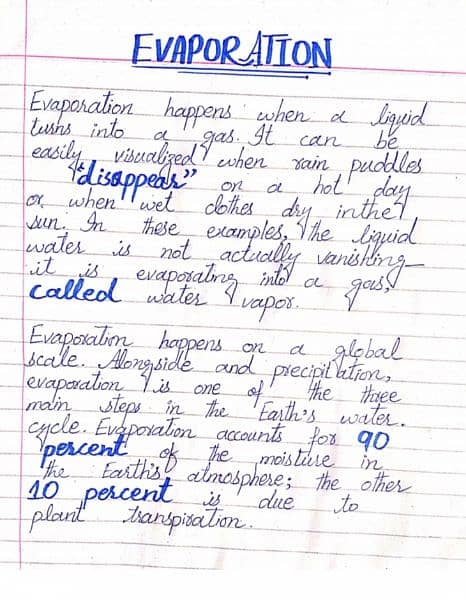 EVAPORATION
Evaporation happens when a liquid
turns into a gas. It can be
easily visualized when rain puddles
"disappear" on a hot day
or when wet clothes dry in the
sun. In these examples, the liquid
water is not actually vanishing—
it is evaporating into a gas,
called water vapor.
Evaporation happens on a global
scale. Alongside and precipitation,
evaporation is one of the three
main steps in the Earth's water.
cycle. Evaporation accounts for 90
percent of the moisture in
the Earth's atmosphere; the other
10 percent is due to
plant transpiration.